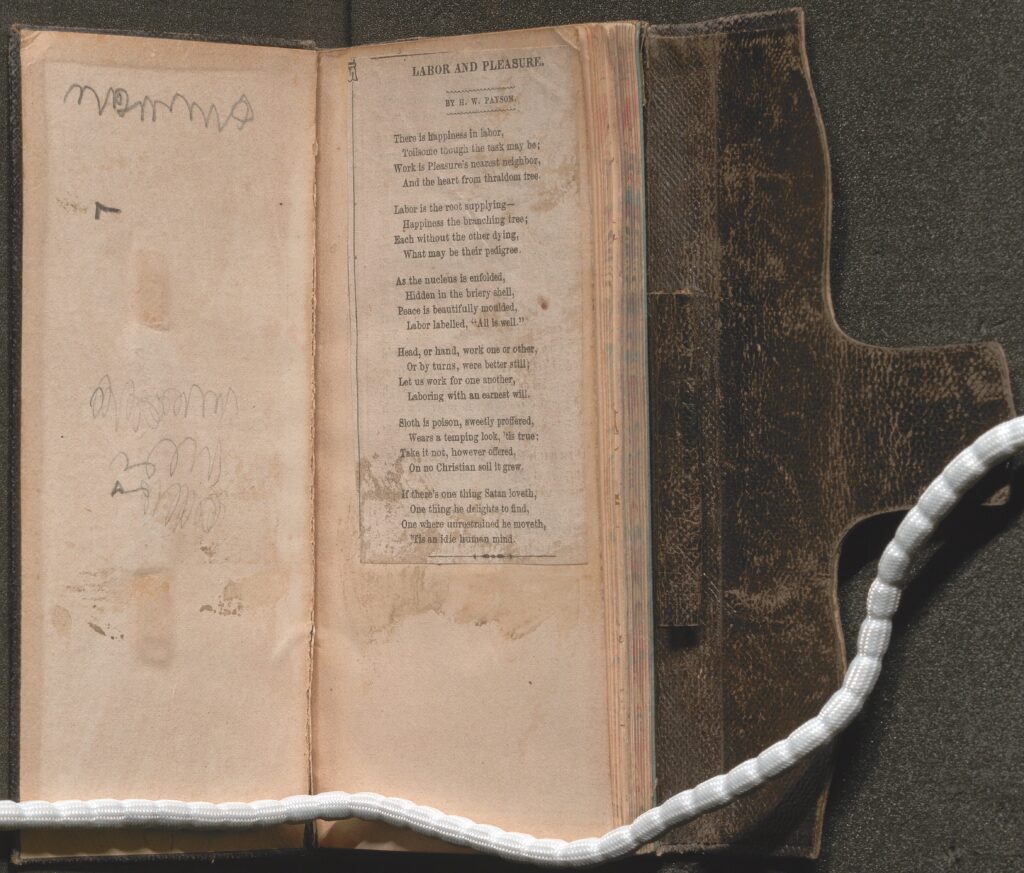 LABOR AND PLEASURE.
BY H. W. PAYSON.
There is happiness in labor,
Toilsome though the task may be;
Work is Pleasure's nearest neighbor,
And the heart from thraldom free.
Labor is the root supplying—
Happiness the branching tree;
Each without the other dying,
What may be their pedigree.
As the nucleus is enfolded,
Hidden in the briery shell,
Peace is beautifully moulded,
Labor labelled, "All is well."
Head, or hand, work one or other,
Or by turns, were better still;
Let us work for one another,
Laboring with an earnest will.
Sloth is poison, sweetly proffered,
Wears a temping look, 'tis true;
Take it not, however offered,
On no Christian soil it grew.
If there's one thing Satan loveth,
One thing he delights to find,
One where unrestrained he moveth,
'Tis an idle human mind.